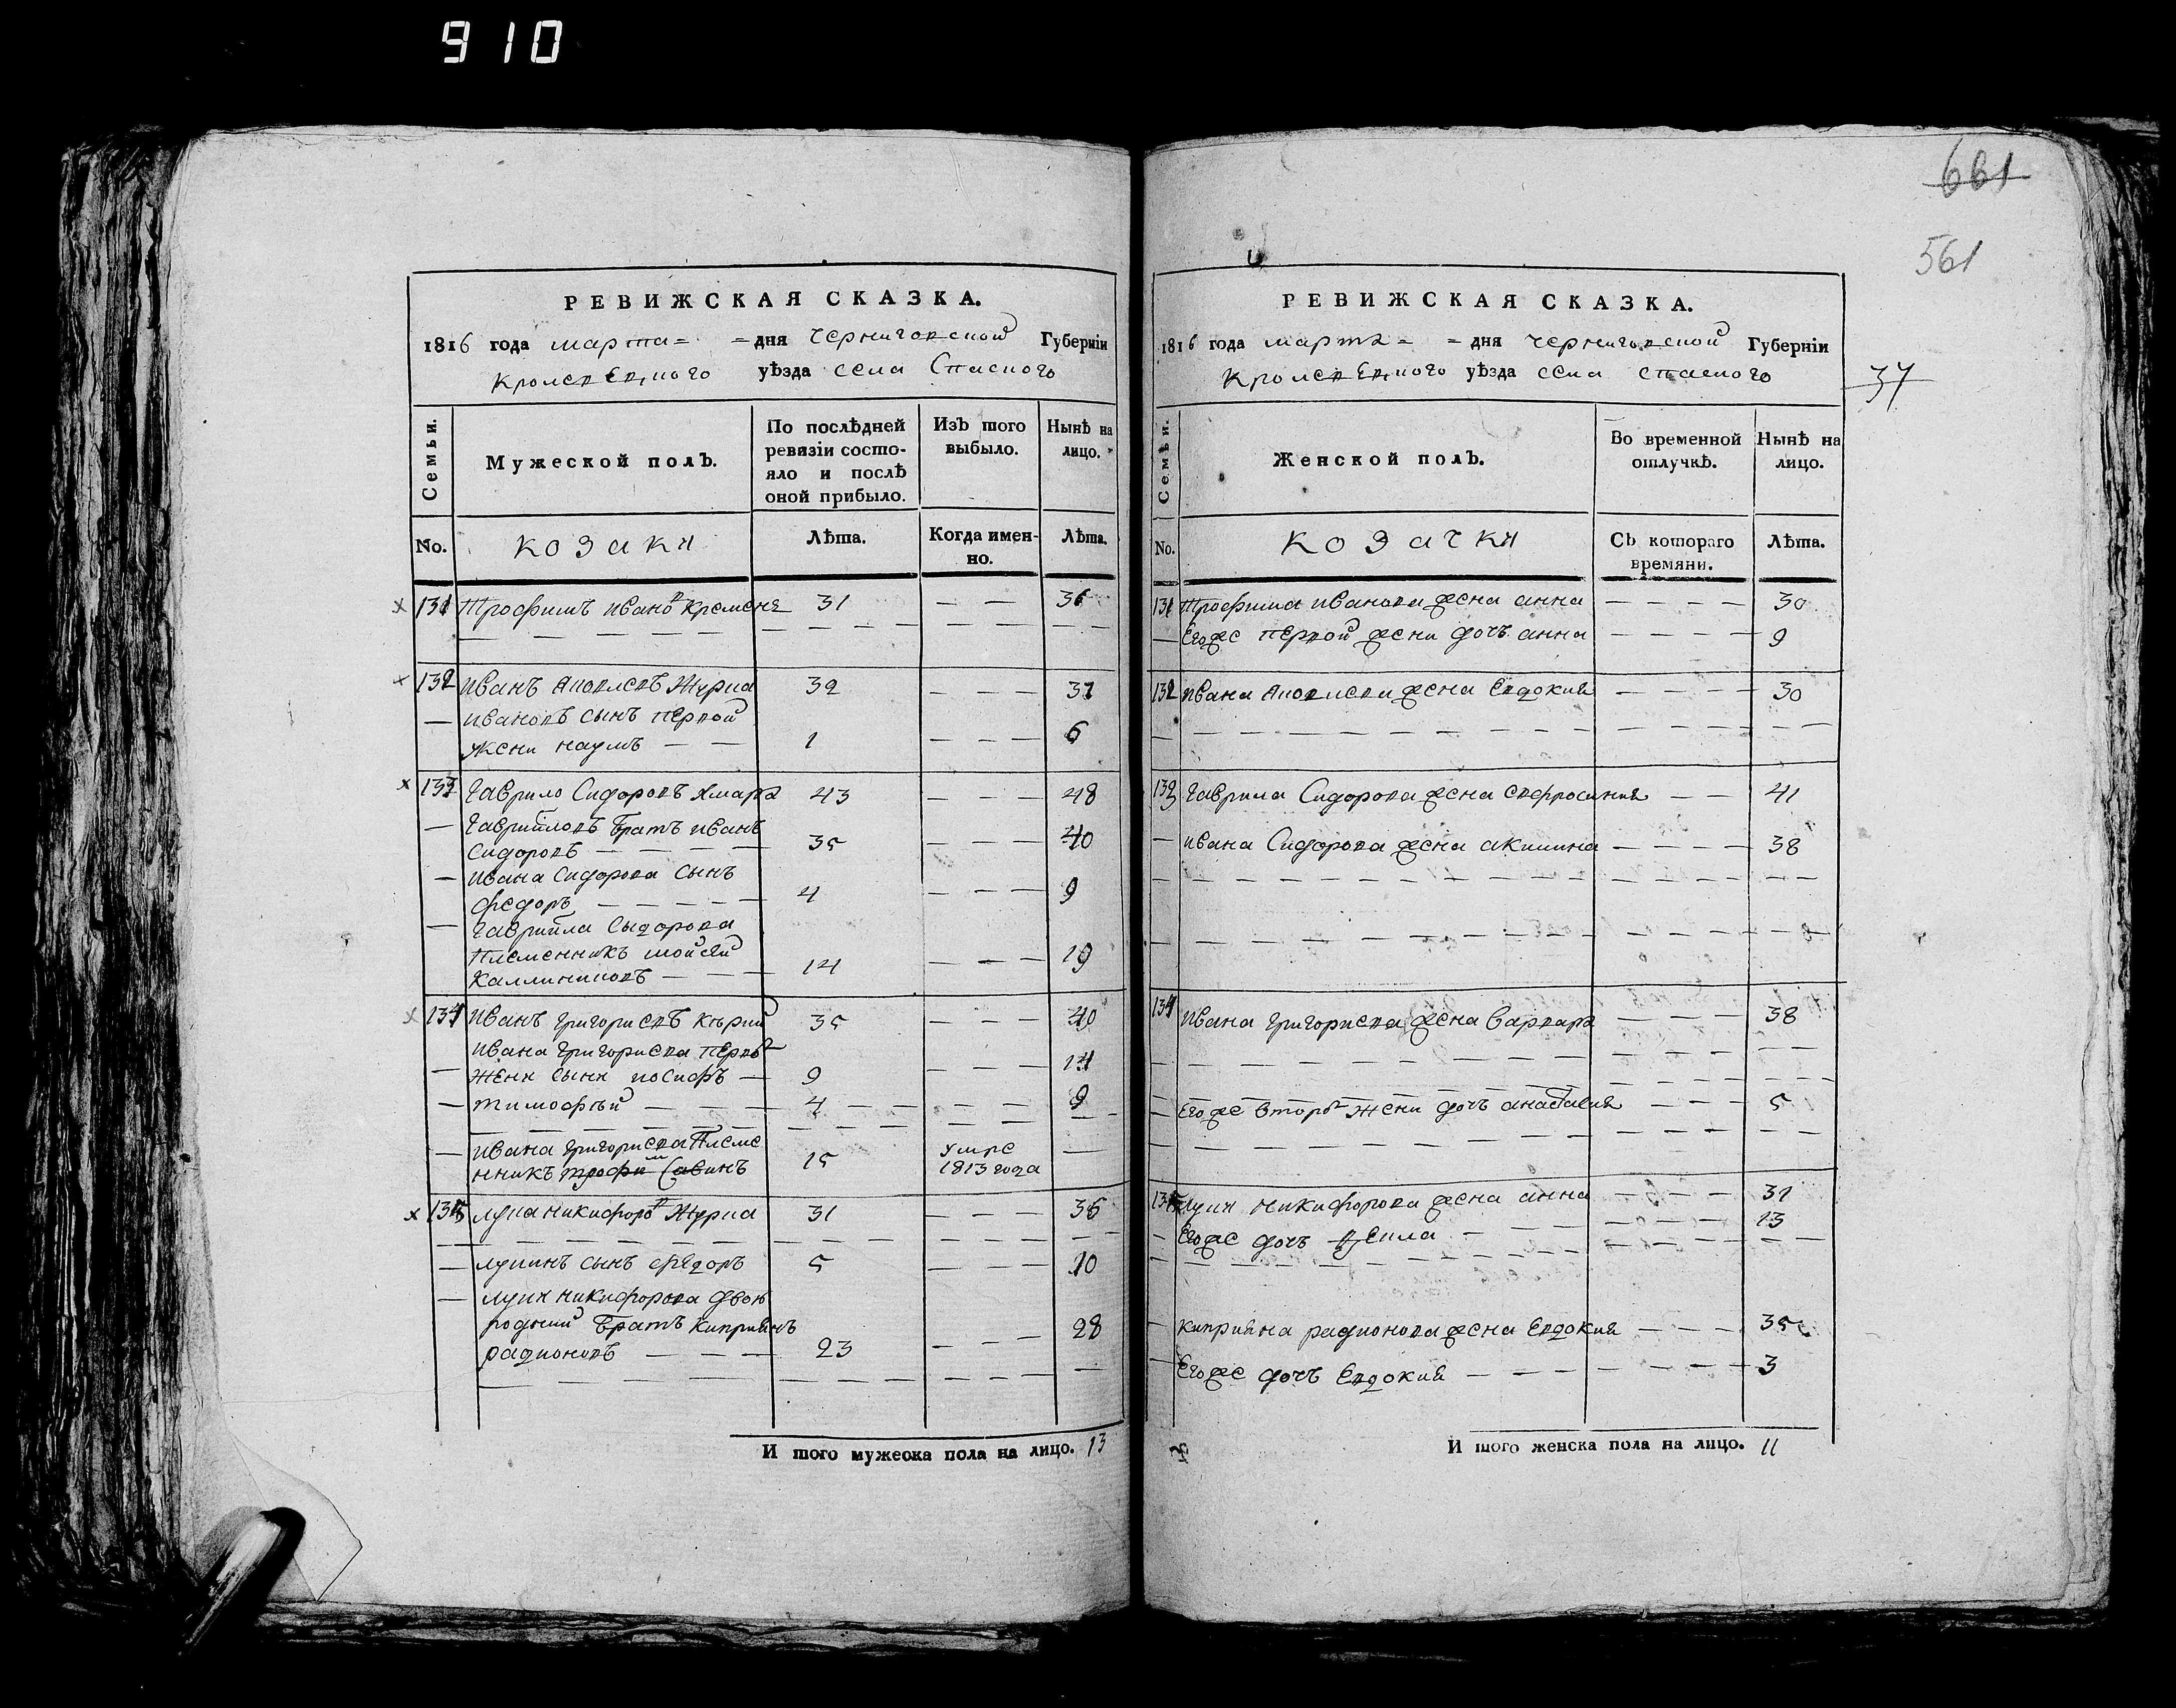 910
661
561
37
РЕВИЖСКАЯ СКАЗКА.
1816 года марта = = дня Черниговской Губерніи
Кролевецкого уѣзда села Спаского
Семьи.
Мужеской полъ.
По послѣдней ревизіи состо-
яло и послѣ
оной прибыло.
Изъ того
выбыло.
Нынѣ на
лицо.
No.
козаки
Лѣта.
Когда имен-
но.
Лѣта.
131 Трофимъ Ивановъ Кременя 31 — — 36
132 Иванъ Яковлевъ Журна 32 — — — 37
— Ивановъ сынъ первой
жени наумъ — — 1 — — — 6
133 Гаврило Сидоровъ Хмара 43 — — — 48
— Гаврииловъ братъ иванъ
Сидоровъ — — — — 35 — — — 40
— Ивана Сидорова сынъ
федоръ — — — — — 4 — — — 9
— Гавриила Сыдорова
Племенникъ мойсей
Калениковъ — — — 14 — — — 19
134 Иванъ Григориевъ 35 — — — 40
Ивана Григориева перво
— жени сыни иосифъ — 9 — — — 14
— тимофѣй — — — 4 — — — — 9
— ивана Григориева Племе
нникъ Савинъ 15 умре —
1813 года
135 лука никифоровъ Журна 31 — — — 36
— лукинъ сынъ федоръ 5 — — — 10
— луки никифорова двою
родний братъ Киприянъ
радионовъ — — — 23 — — — 28
И того мужеска пола на лицо. 13
РЕВИЖСКАЯ СКАЗКА.
1816 года марта = = дня черниговской Губерніи
Кролевецкого уѣзда села спаского
Семьи.
Женской полъ.
Во временной
отлучкѣ.
Нынѣ на
лицо.
No.
козачки
Съ котораго
времяни.
Лѣта.
131 Трофима иванова жена анна — — — — 30
— Егоже первой жени дочь анна — — — — 9
132 Ивана Яковлева жена Евдокия — — — — 30
133 Гаврила Сидорова жена Евфросиния — — 41
— ивана Сидорова жена акилина — — — — 38
134 Ивана григориева жена варвара — — — 38
— Егоже второ жени дочь анастасия — — — 5
135 луки никифорова жена анна — — — — 31
— Егоже дочь — 13
— киприяна радионова жена Евдокия — — — 35
— Егоже дочь Евдокия — — — — — — — 3
И того женска пола на лицо. 11